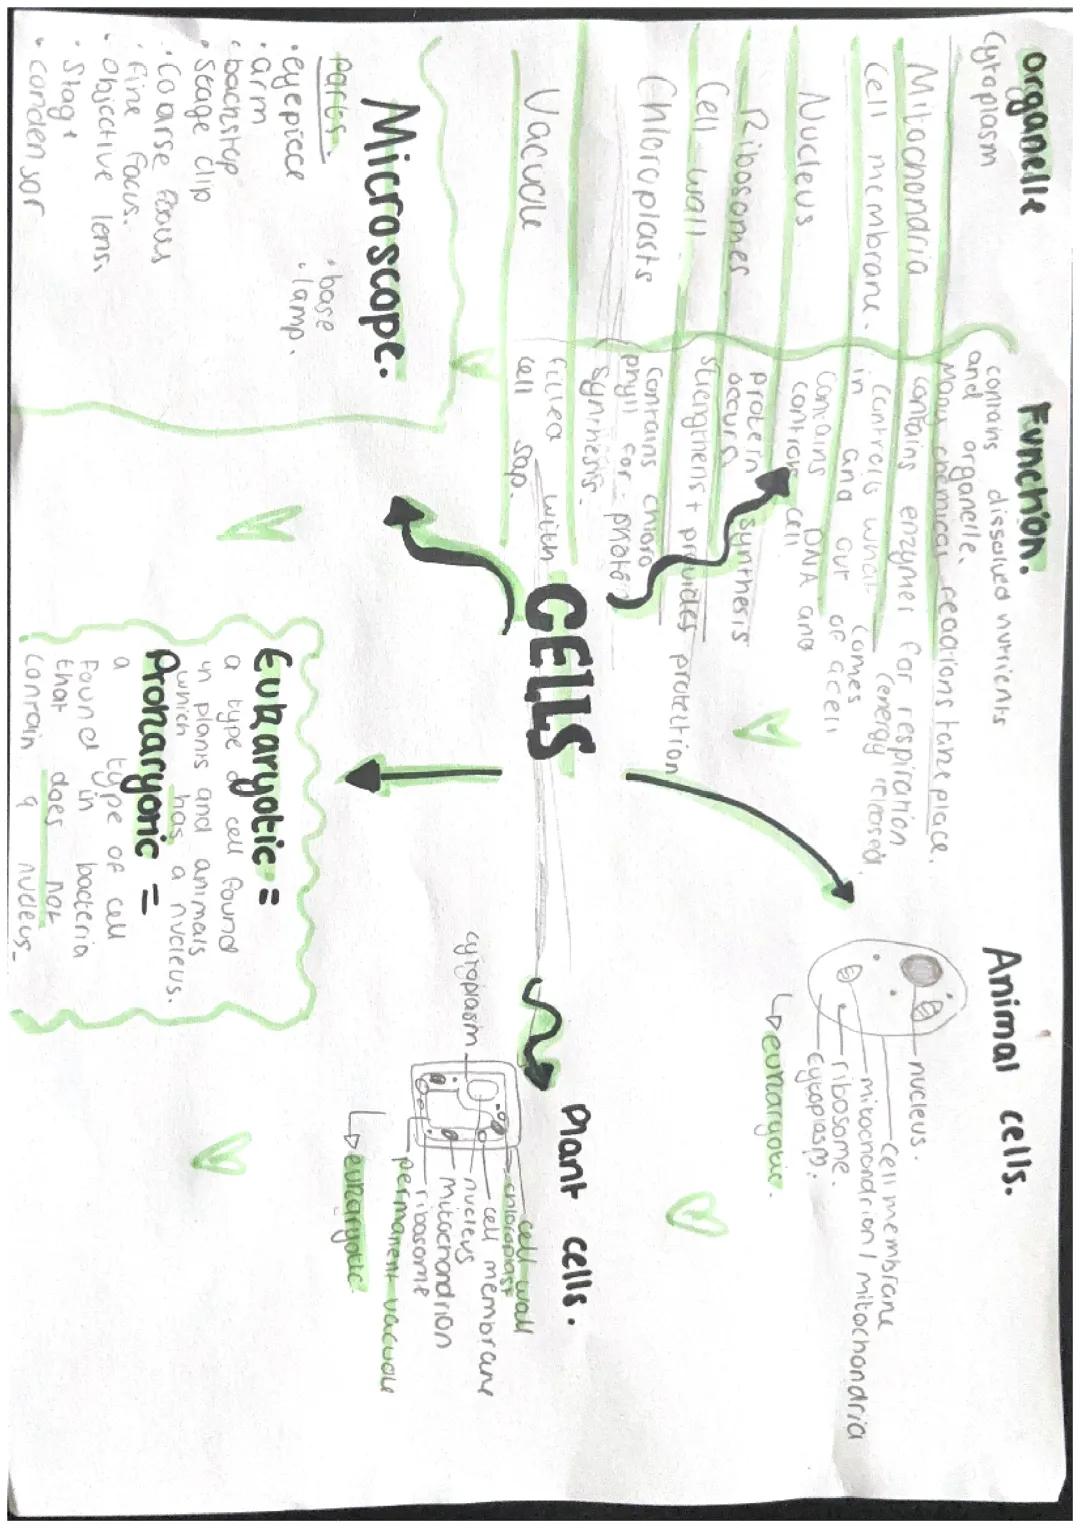 organelle
Function.
Cytoplasm
contains dissolved nutrients
and organelle.
Many chemical reactions take place.
Mitochondria
contains enzymes for respiration
(energy released)
Cell membrane.
Controls what comes
in and out of a cell
Nucleus
Contains DNA and
controls cell
Ribosomes
protein synthesis
occurs
Cell wall
strengthens + provides protection
Chloroplasts
Contains chloro
phyll for photo
synthesis.
Vacuole
filled with
cell sap.
CELLS
Animal cells.
nucleus.
cell membrane
mitochondrion / mitochondria
ribosome.
cytoplasm.
↳ eukaryotic.
Plant cells.
cell wall
chloroplast
cell membrane
nucleus
mitochondrion
ribosome
permanent vacuole
cytoplasm
↳ eukaryotic
Microscope.
parts.
• eyepiece
• arm
• backstop
• stage clip
• Coarse focus
• fine focus.
• objective lens.
• Stage
• condensor
• base
• lamp.
Eukaryotic =
a type of cell found
in plants and animals
which has a nucleus.
Prokaryonic =
a type of cell
found in bacteria
that does not
contain a nucleus.